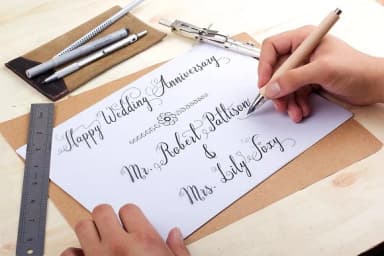 Happy Wedding Anniversary
Mr. Robert Pattison
&
Mrs. Lily Foxy